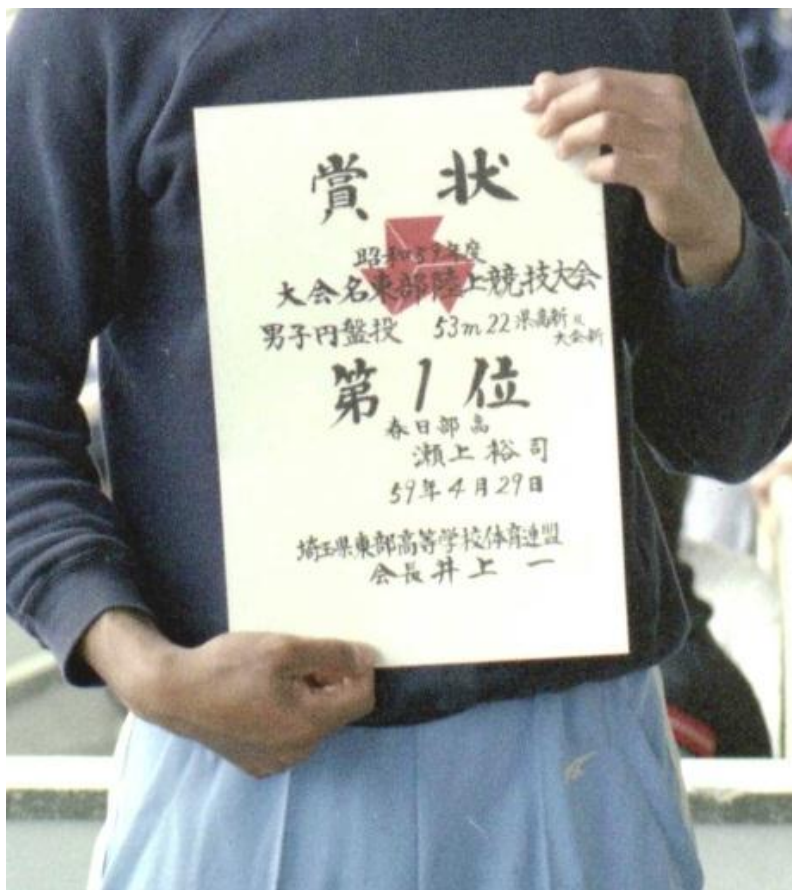 賞状
昭和59年度
大会名東部陸上競技大会
男子円盤投 53m22 県高新
大会新
第1位
春日部高
瀬上裕司
59年4月29日
埼玉県東部高等学校体育連盟
会長井上一